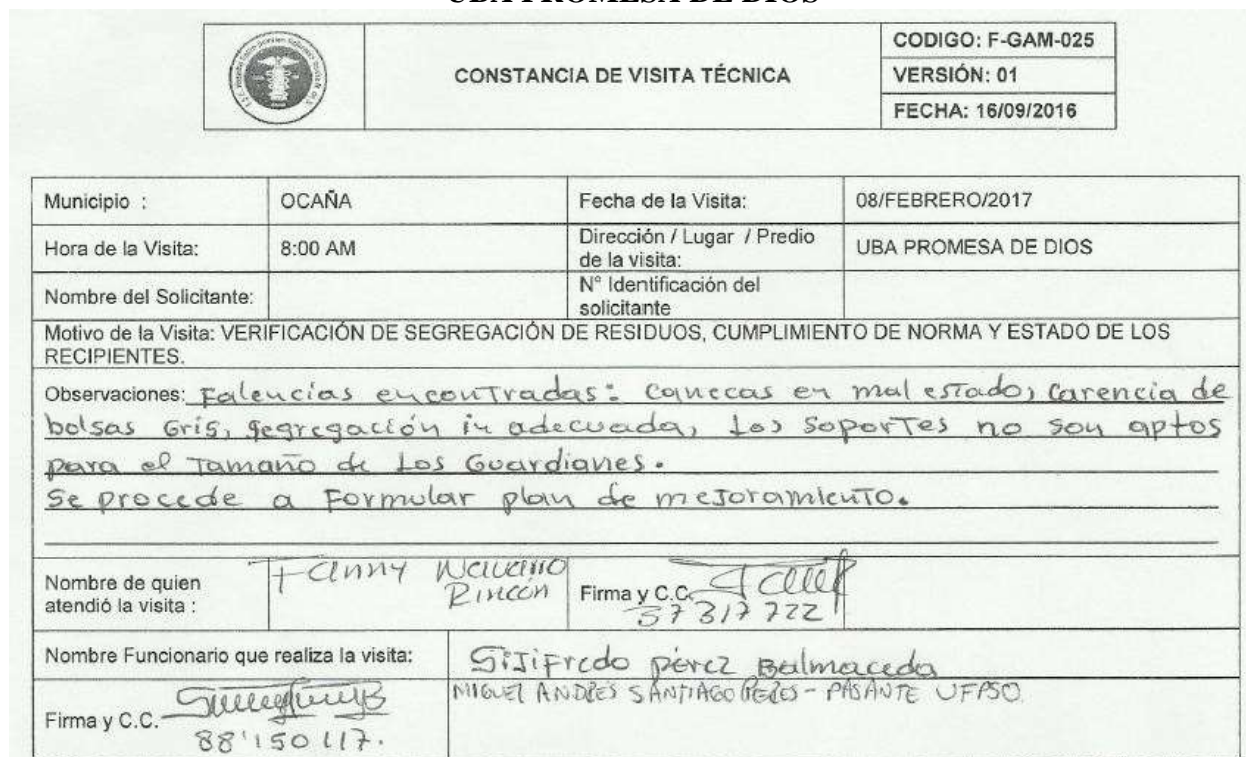 UBA PROMESA DE DIOS
CONSTANCIA DE VISITA TÉCNICA
CODIGO: F-GAM-025
VERSIÓN: 01
FECHA: 16/09/2016
Municipio : OCAÑA Fecha de la Visita: 08/FEBRERO/2017
Hora de la Visita: 8:00 AM Dirección / Lugar / Predio de la visita: UBA PROMESA DE DIOS
Nombre del Solicitante: N° Identificación del solicitante
Motivo de la Visita: VERIFICACIÓN DE SEGREGACIÓN DE RESIDUOS, CUMPLIMIENTO DE NORMA Y ESTADO DE LOS
RECIPIENTES.
Observaciones: Falencias encontradas: canecas en mal estado, Carencia de
bolsas Gris, segregación inadecuada, Los soportes no son aptos
para el Tamaño de Los Guardianes.
Se procede a Formular plan de mejoramiento.
Nombre de quien atendió la visita : Fanny Navarro Rincón Firma y C.C. 37317722
Nombre Funcionario que realiza la visita: Sijifredo pérez Balmaceda
MIGUEL ANDRÉS SANTIAGO - PASANTE UFPSO
Firma y C.C. 88'150117.